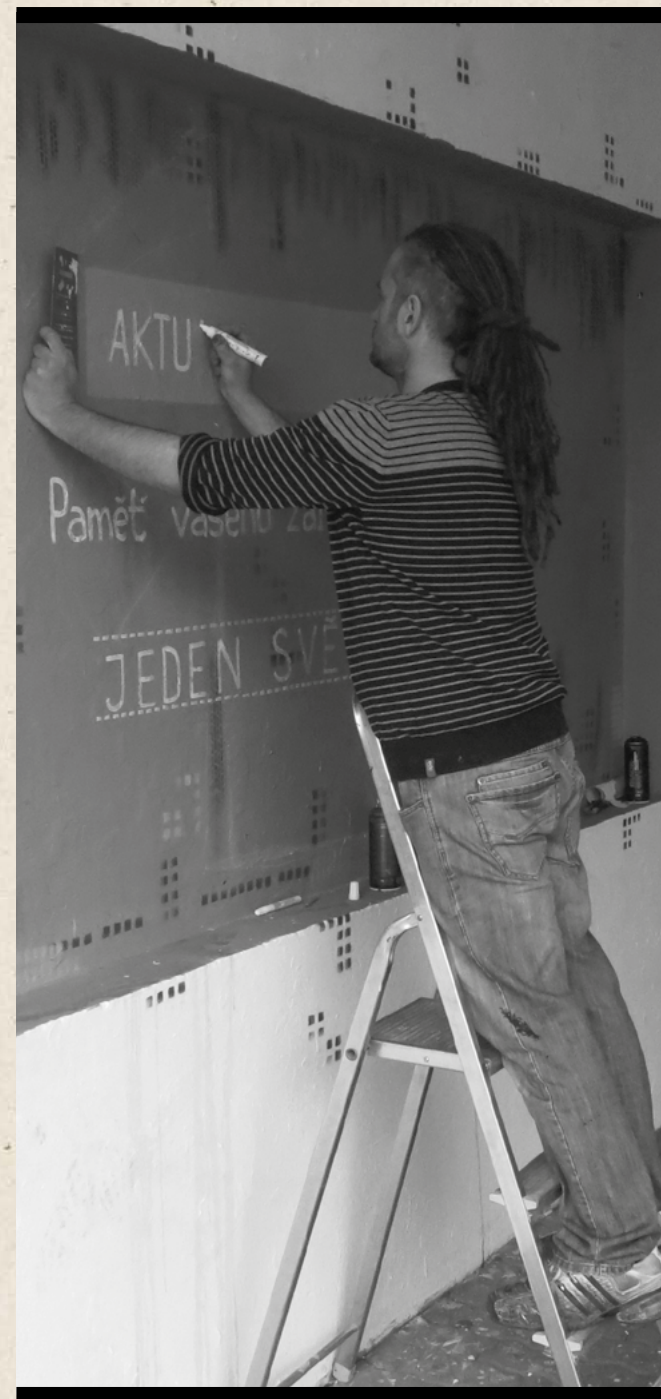 AKTU
Paměť vašeho
JEDEN SVĚ